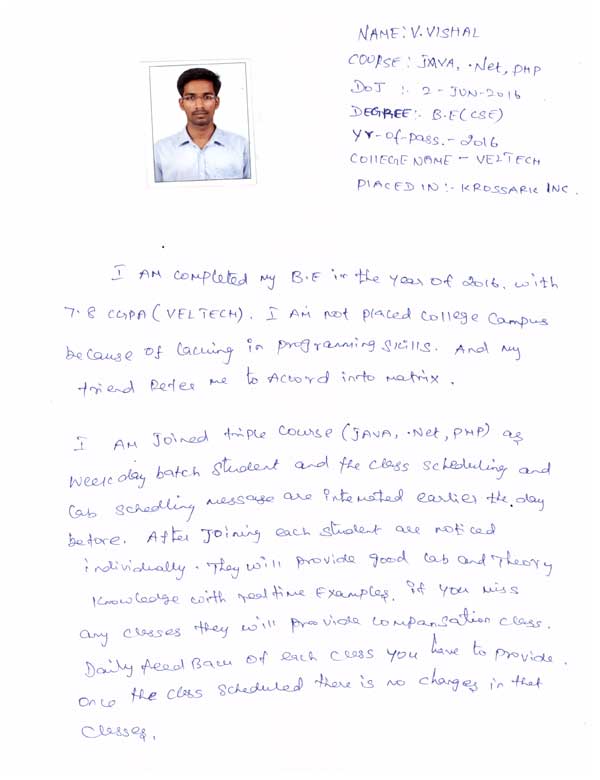 NAME: V. VISHAL
COURSE: JAVA, .Net, PHP
DOJ :- 2-JUN-2016
DEGREE:- B.E (CSE)
Yr-of-Pass.- 2016
COllEGE NAME - VELTECH
PlACED IN :- KROSSARK INC.
I AM completed my B.E in the year of 2016. with
7.8 CGPA (VELTECH). I AM not placed College Campus
because of lacking in programming skills. And my
friend Refer me to Accord info matrix.
I AM Joined triple Course (JAVA, .Net, PHP) as
Weekday batch Student and the class scheduling and
Lab schedling message are intemated earlier the day
before. After Joining each student are noticed
individually. They will provide good lab and Theory
Knowledge with realtime Examples. if you miss
any classes they will provide compansation class.
Daily feed Back of each class you have to provide.
Once the class scheduled there is no changes in that
classes.